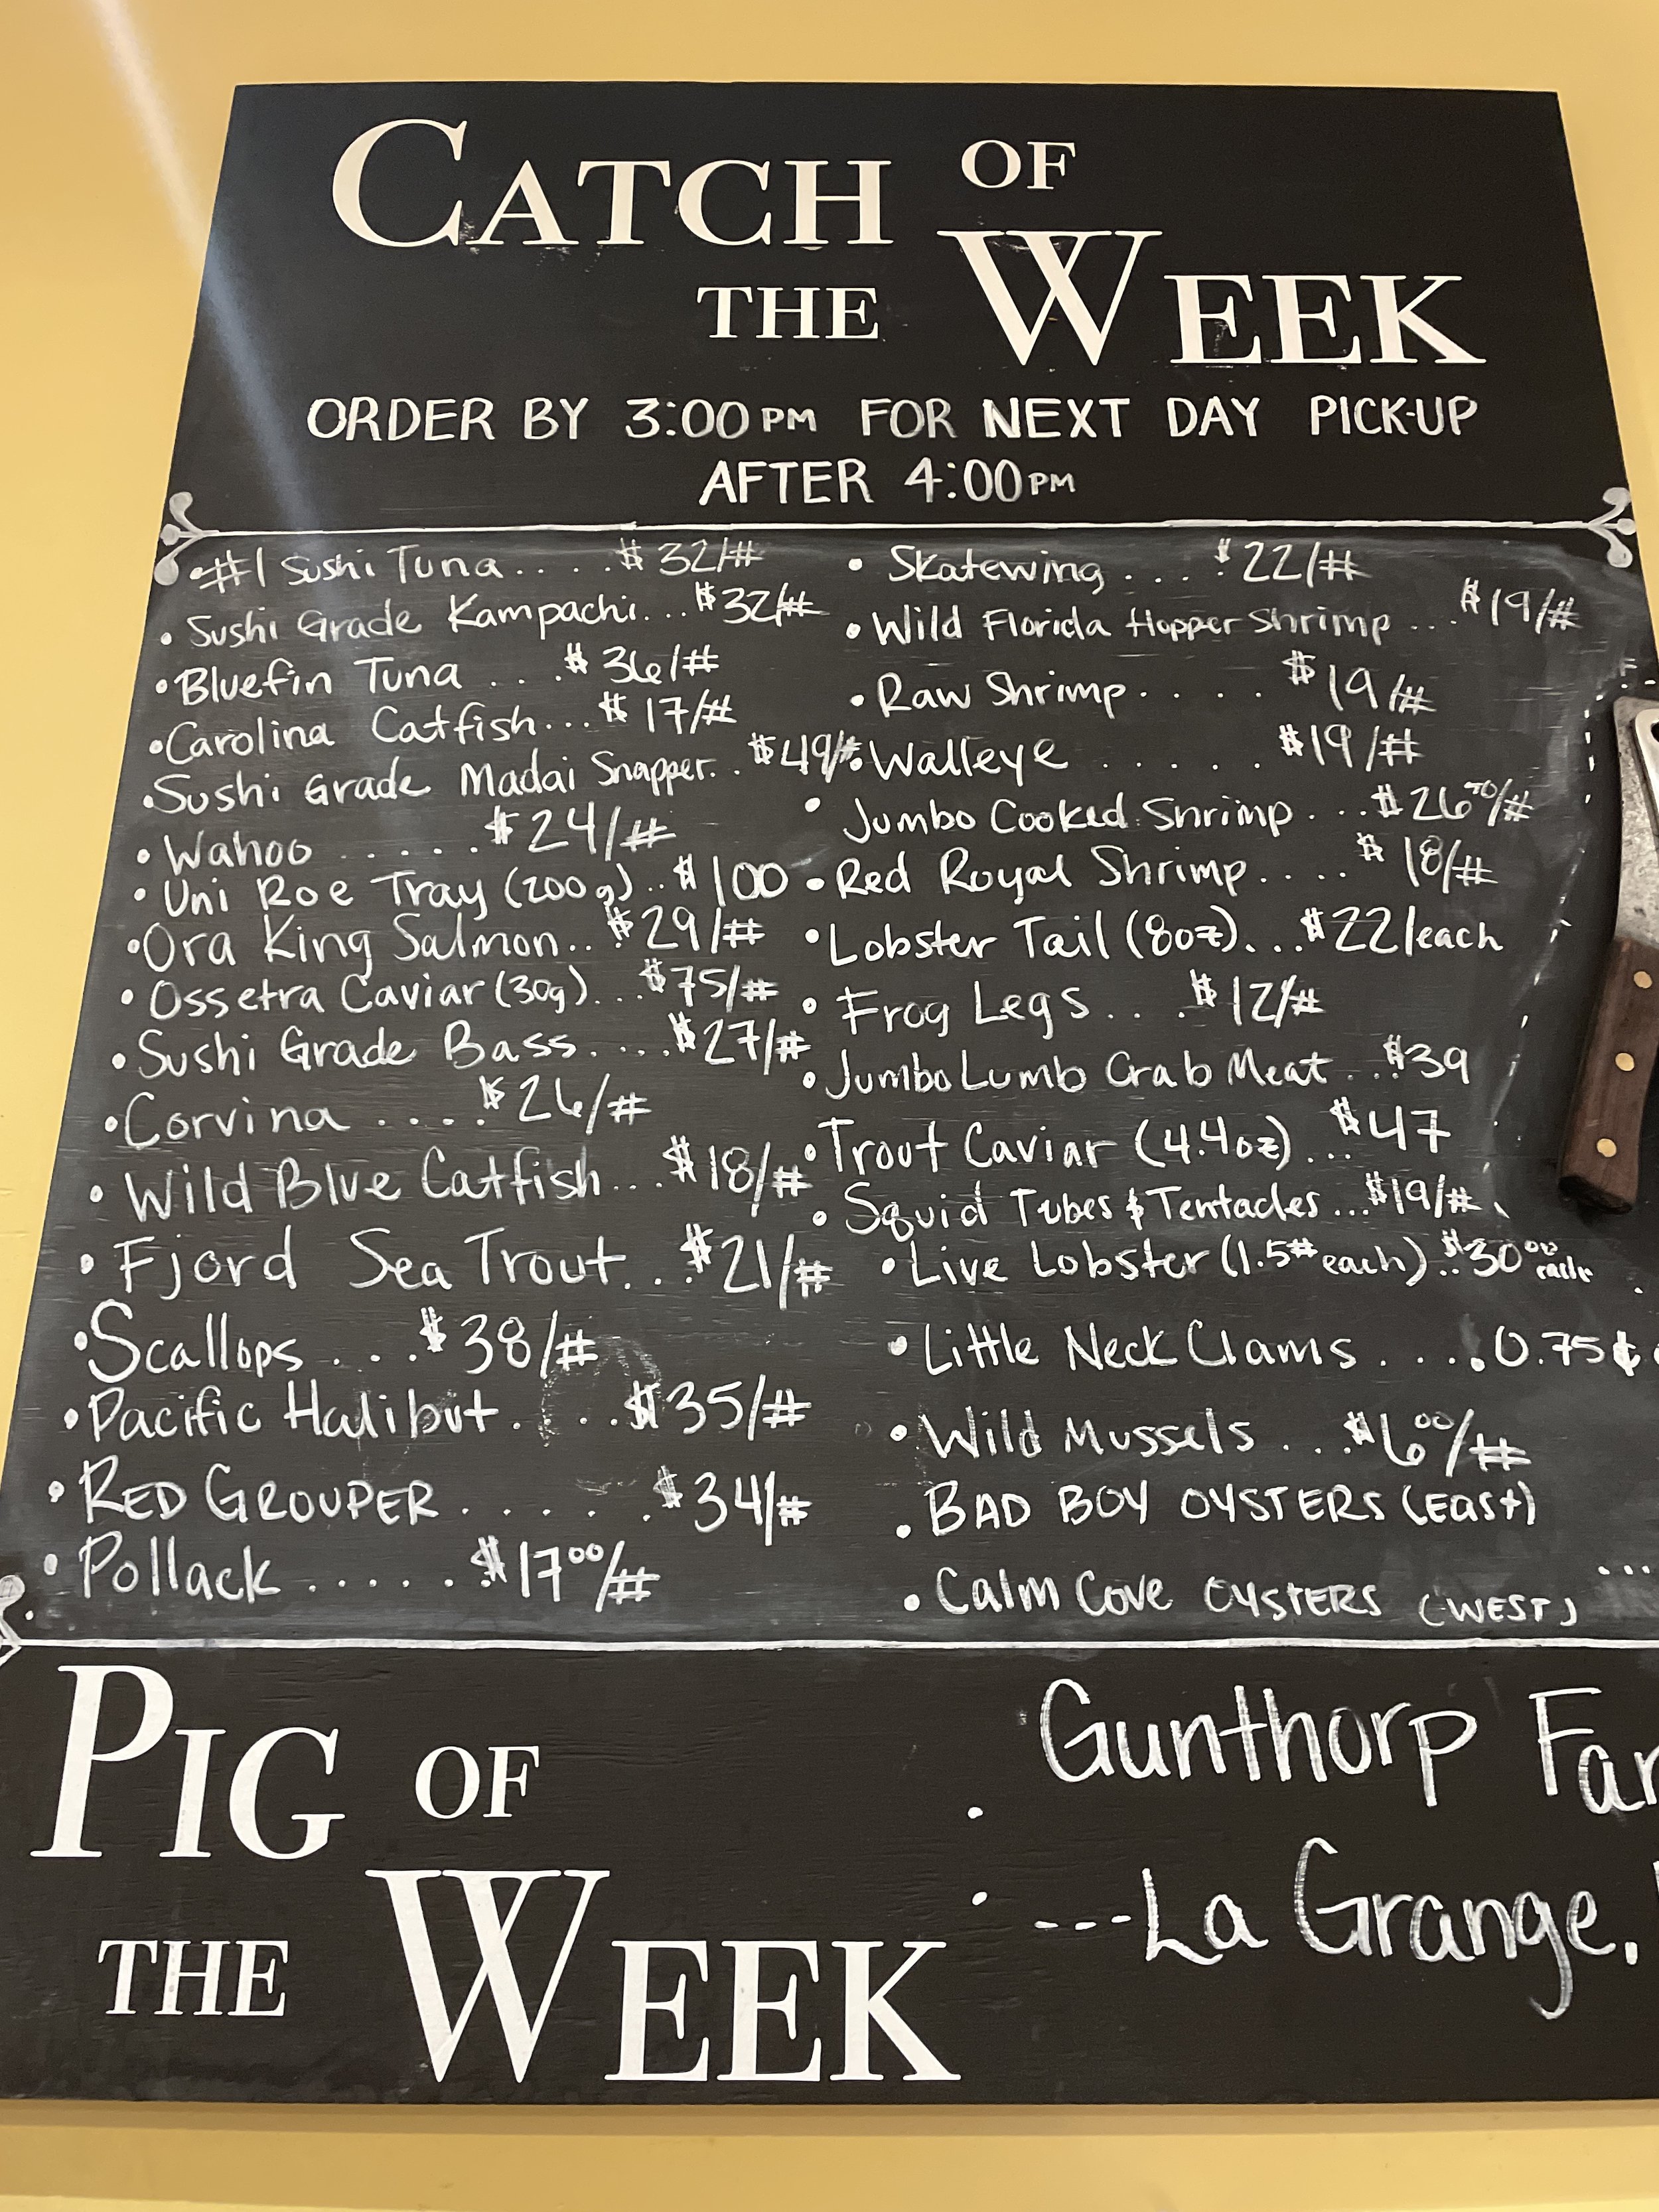 CATCH OF
THE WEEK
ORDER BY 3:00 PM FOR NEXT DAY PICK-UP
AFTER 4:00 PM
• #1 Sushi Tuna.....$32/#
• Sushi Grade Kampachi...$32/#
• Bluefin Tuna ....$36/#
• Carolina Catfish...$17/#
• Sushi Grade Madai Snapper..$49/#
• Wahoo ......$24/#
• Uni Roe Tray (200g)..$100
• Ora King Salmon..$29/#
• Ossetra Caviar (30g)...$75/#
• Sushi Grade Bass....$27/#
• Corvina ....$26/#
• Wild Blue Catfish...$18/#
• Fjord Sea Trout...$21/#
• Scallops ....$38/#
• Pacific Halibut....$35/#
• RED GROUPER .....$34/#
• Pollack ......$17⁰⁰/#
• Skatewing ....$22/#
• Wild Florida Hopper Shrimp ...$19/#
• Raw Shrimp.....$19/#
• Walleye ......$19/#
• Jumbo Cooked Shrimp ...$26/#
• Red Royal Shrimp....$18/#
• Lobster Tail (8oz)....$22/each
• Frog Legs....$12/#
• Jumbo Lumb Crab Meat ..$39
• Trout Caviar (4.4oz)...$47
• Squid Tubes & Tentacles...$19/#
• Live Lobster (1.5# each)..$30⁰⁰ each
• Little Neck Clams .....0.75¢
• Wild Mussels ...$6⁰⁰/#
• BAD BOY OYSTERS (East)
• Calm Cove OYSTERS (WEST) ...
PIG OF
THE WEEK
• Gunthorp Far
• ---La Grange,